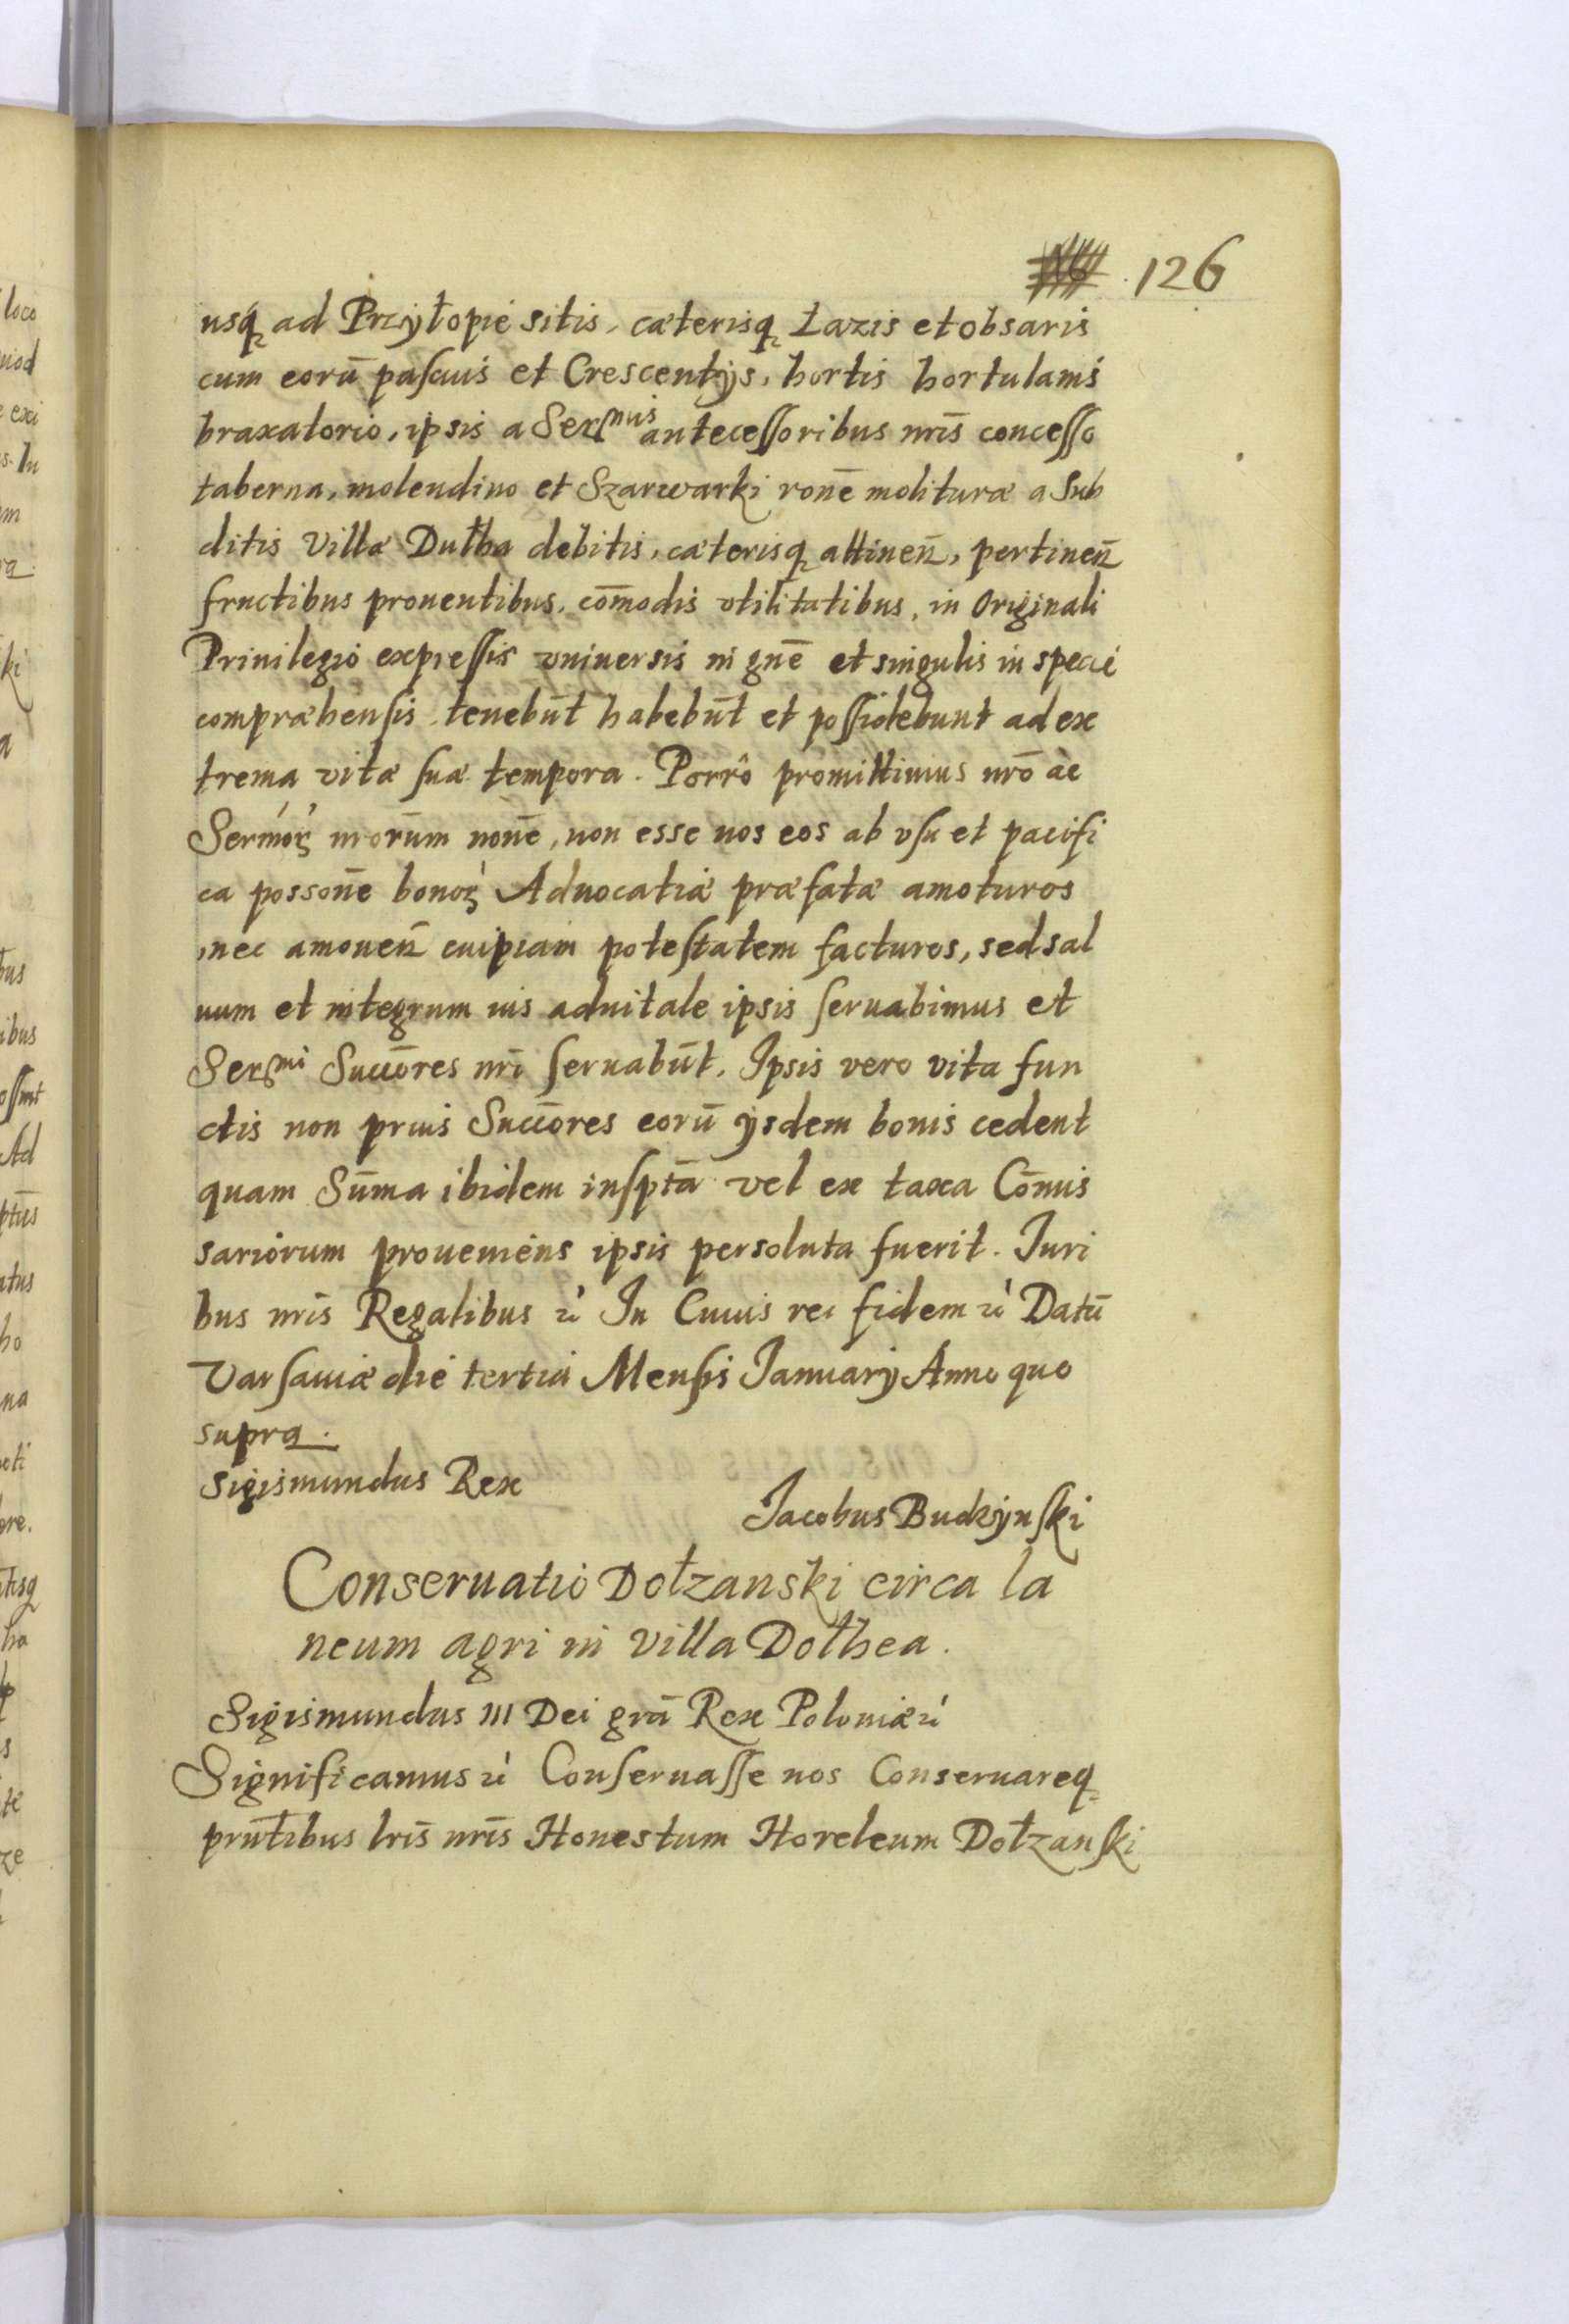 126
usq₂ ad Przyłopie sitis, cæterisq₂ Łazis et obsaris
cum eorū paſcuis et Crescentijs, hortis hortulanis
braxatorio, ipsis a Serᵐⁱˢ anteceſſoribus nr̄is conceſſo
taberna, molendino et Szarwarki ron̄e molituræ a Sub
ditis Villæ Dułba debitis, cæterisq₂ attinen̄, pertinen̄
fructibus prouentibus, com̄odis vtilitatibus, in Originali
Priuilegio expreſſis vniuersis in gn̄e et singulis in specie
compræhenſis tenebūt habebūt et poſſidebunt ad ex
trema vitæ ſuæ tempora. Porrò promittimus nr̄o ac
Sermor̄ nrōrum noīe, non esse nos eos ab vſu et pacifi
ca posson̄e bonor̄ Aduocatiæ præfatæ amoturos
nec amouen̄ cuipiam poteſtatem facturos, sed sal
uum et integrum ius aduitale ipsis ſeruabimus et
Serᵐⁱ Succōres nr̄i ſeruabūt. Ipsis vero vita fun
ctis non prius Succōres eorū ijsdem bonis cedent
quam Sūma ibidem inſptā vel ex taxa Cōmis
sariorum proueniens ipsis persoluta fuerit. Iuri
bus nr̄is Regalibus &c In Cuius rei fidem &c Datū
Varſauiæ die tertia Menſis Ianuarij Anno quo
supra.
Sigismundus Rex
Jacobus Budzynſki
Conseruatio Dołzanski circa la
neum agri in villa Dołhea.
Sigismundus III Dei grā Rex Poloniæ &c
Significamus &c Conſeruaſſe nos Conseruareq₂
prn̄tibus lr̄is nr̄is Honestum Horeleum Dołzanſki